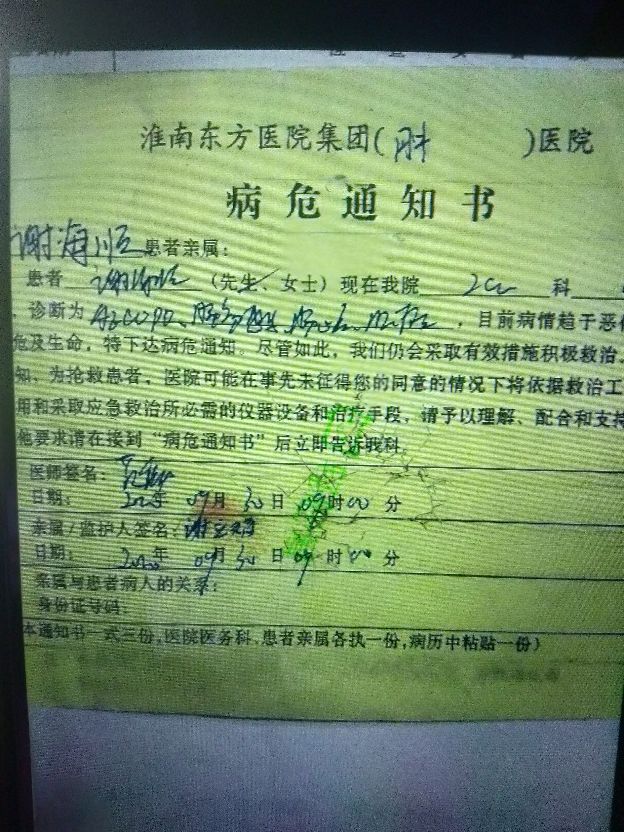 淮南东方医院集团( )医院
病危通知书
谢海顺患者亲属：
患者 谢海顺 (先生、女士)现在我院 ICU 科
，诊断为 AECOPD、 ，目前病情趋于恶
危及生命，特下达病危通知。尽管如此，我们仍会采取有效措施积极救治
知，为抢救患者，医院可能在事先未征得您的同意的情况下将依据救治工
用和采取应急救治所必需的仪器设备和治疗手段，请予以理解、配合和支持
他要求请在接到“病危通知书”后立即告诉我科。
医师签名：
日期： 2020年 09月 30日 09时00分
亲属/监护人签名：
日期： 2020年 09月 30日 09时00分
亲属与患者病人的关系：
身份证号码：
本通知书一式三份,医院医务科、患者亲属各执一份,病历中粘贴一份)